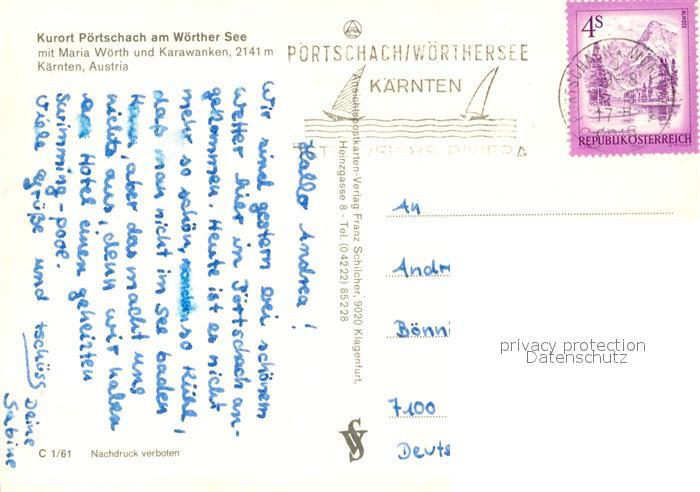 Kurort Pörtschach am Wörther See
mit Maria Wörth und Karawanken, 2141 m
Kärnten, Austria
PÖRTSCHACH/WÖRTHERSEE
KÄRNTEN
ÖSTERREICHS RIVIERA
4S
ALMSEE
REPUBLIK ÖSTERREICH
Hallo Andrea!
Wir sind gestern bei schönem
Wetter hier in Pörtschach an-
gekommen. Heute ist es nicht
mehr so schön, so kühl,
daß man nicht im See baden
kann, aber das macht uns
nichts aus, denn wir haben
im Hotel einen geheizten
Swimming-pool.
Viele Grüße und tschüss Deine
Sabine
Ansichtspostkarten-Verlag Franz Schilcher, 9020 Klagenfurt,
Heinzgasse 8 - Tel. (0 42 22) 85 2 28
An
Andr
Bönni
7100
Deuts
privacy protection
Datenschutz
C 1/61 Nachdruck verboten